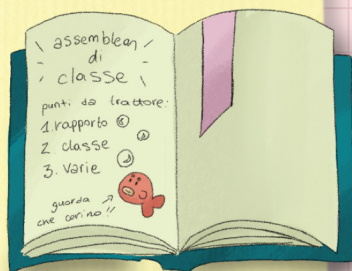 assemblea
di
classe
punti da trattare:
1. rapporto
2 classe
3. varie
guarda
che carino!!